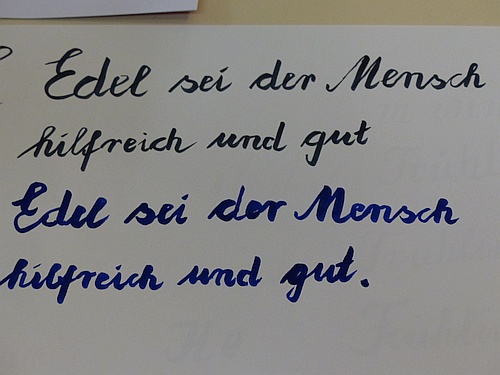 Edel sei der Mensch
hilfreich und gut
Edel sei der Mensch
hilfreich und gut.